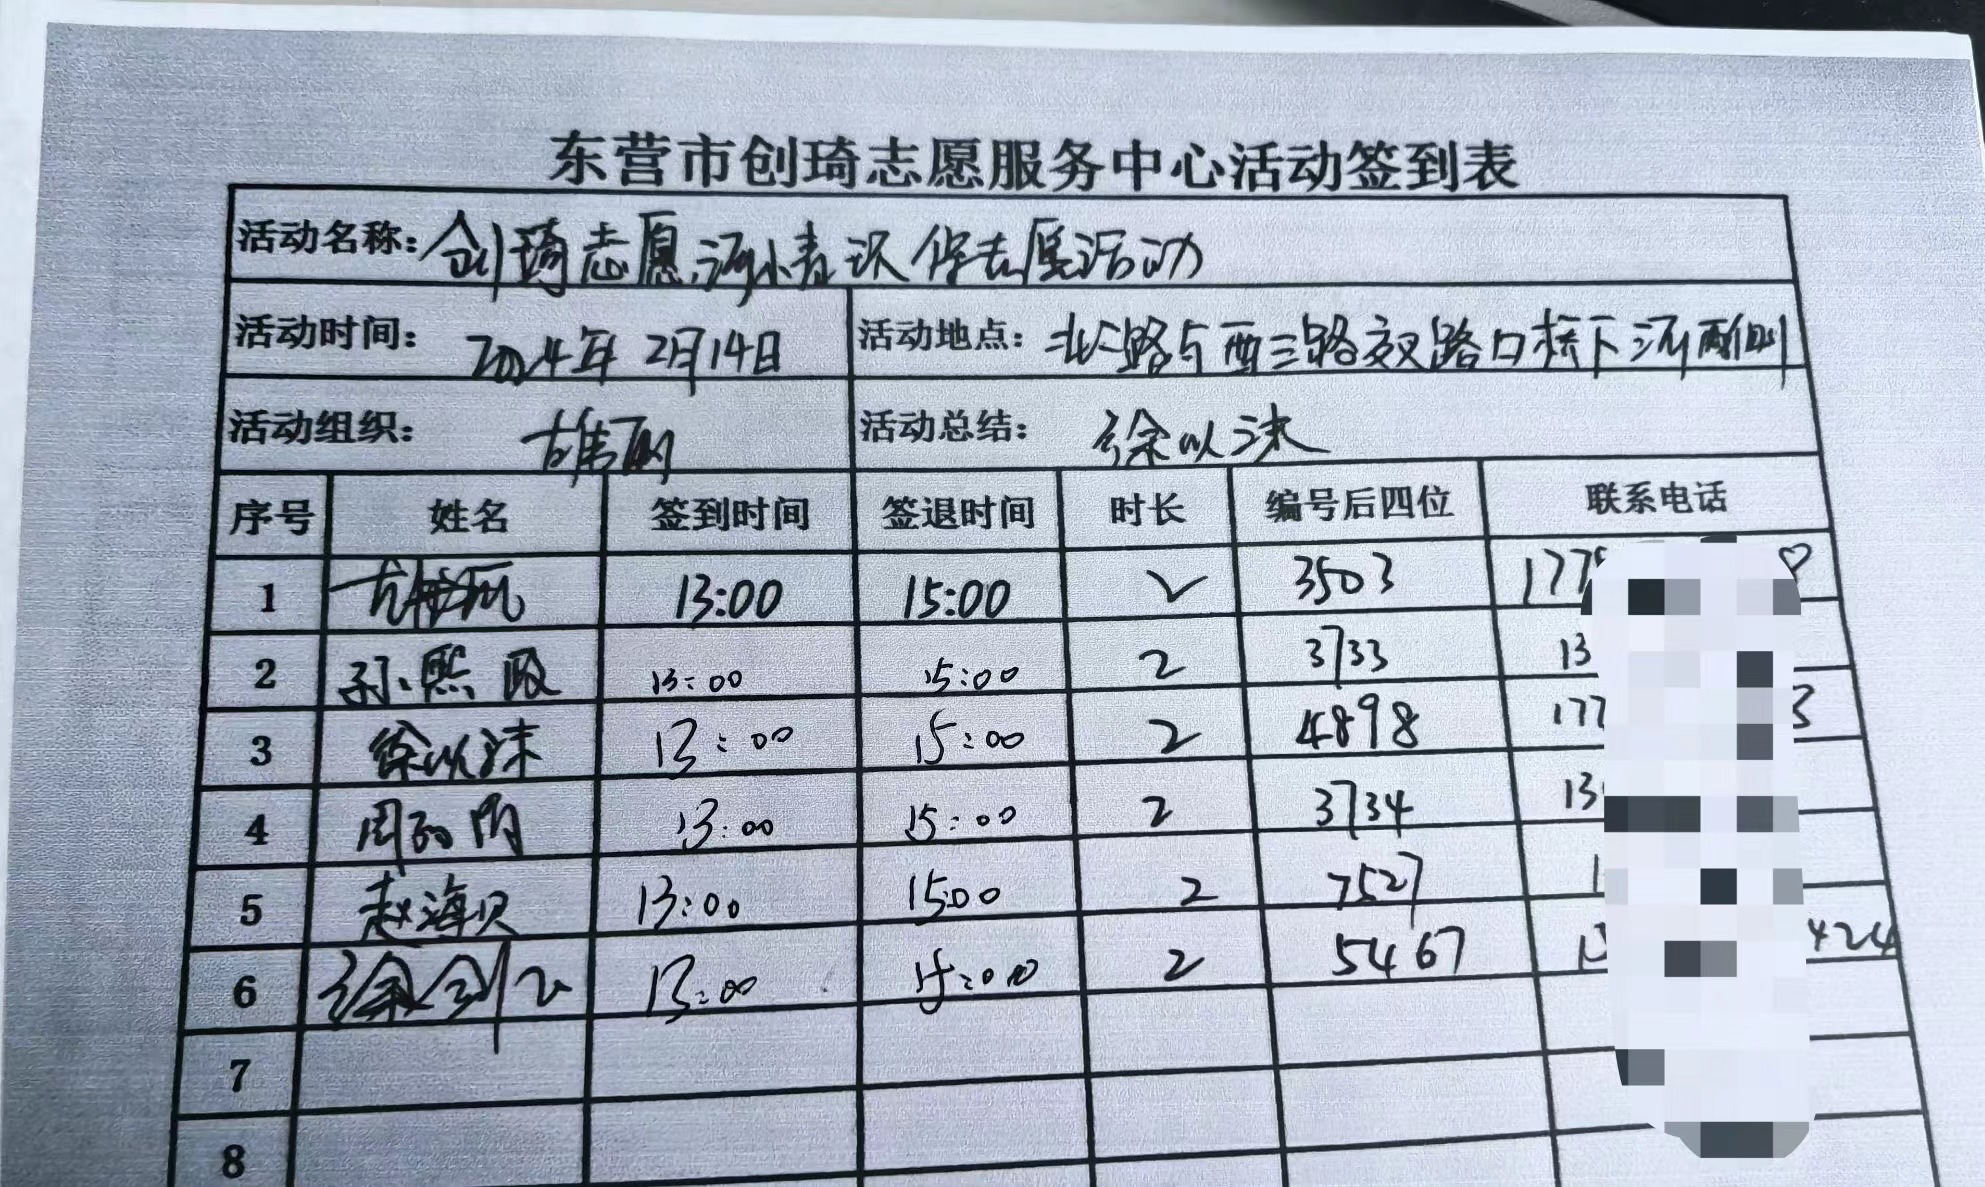 东营市创琦志愿服务中心活动签到表
活动名称：创琦志愿，河小青 保志愿活动
活动时间：2024年2月14日 活动地点：北二路与西三路交叉路口桥下河两侧
活动组织： 活动总结：徐以沫
序号 姓名 签到时间 签退时间 时长 编号后四位 联系电话
1 13:00 15:00 2 3503 177
2 孙熙 13:00 15:00 2 3733 13
3 徐以沫 13:00 15:00 2 4898 177 3
4 周 13:00 15:00 2 3734 13
5 赵海贝 13:00 15:00 2 7527 1
6 徐 13:00 15:00 2 5467 13 424
7
8